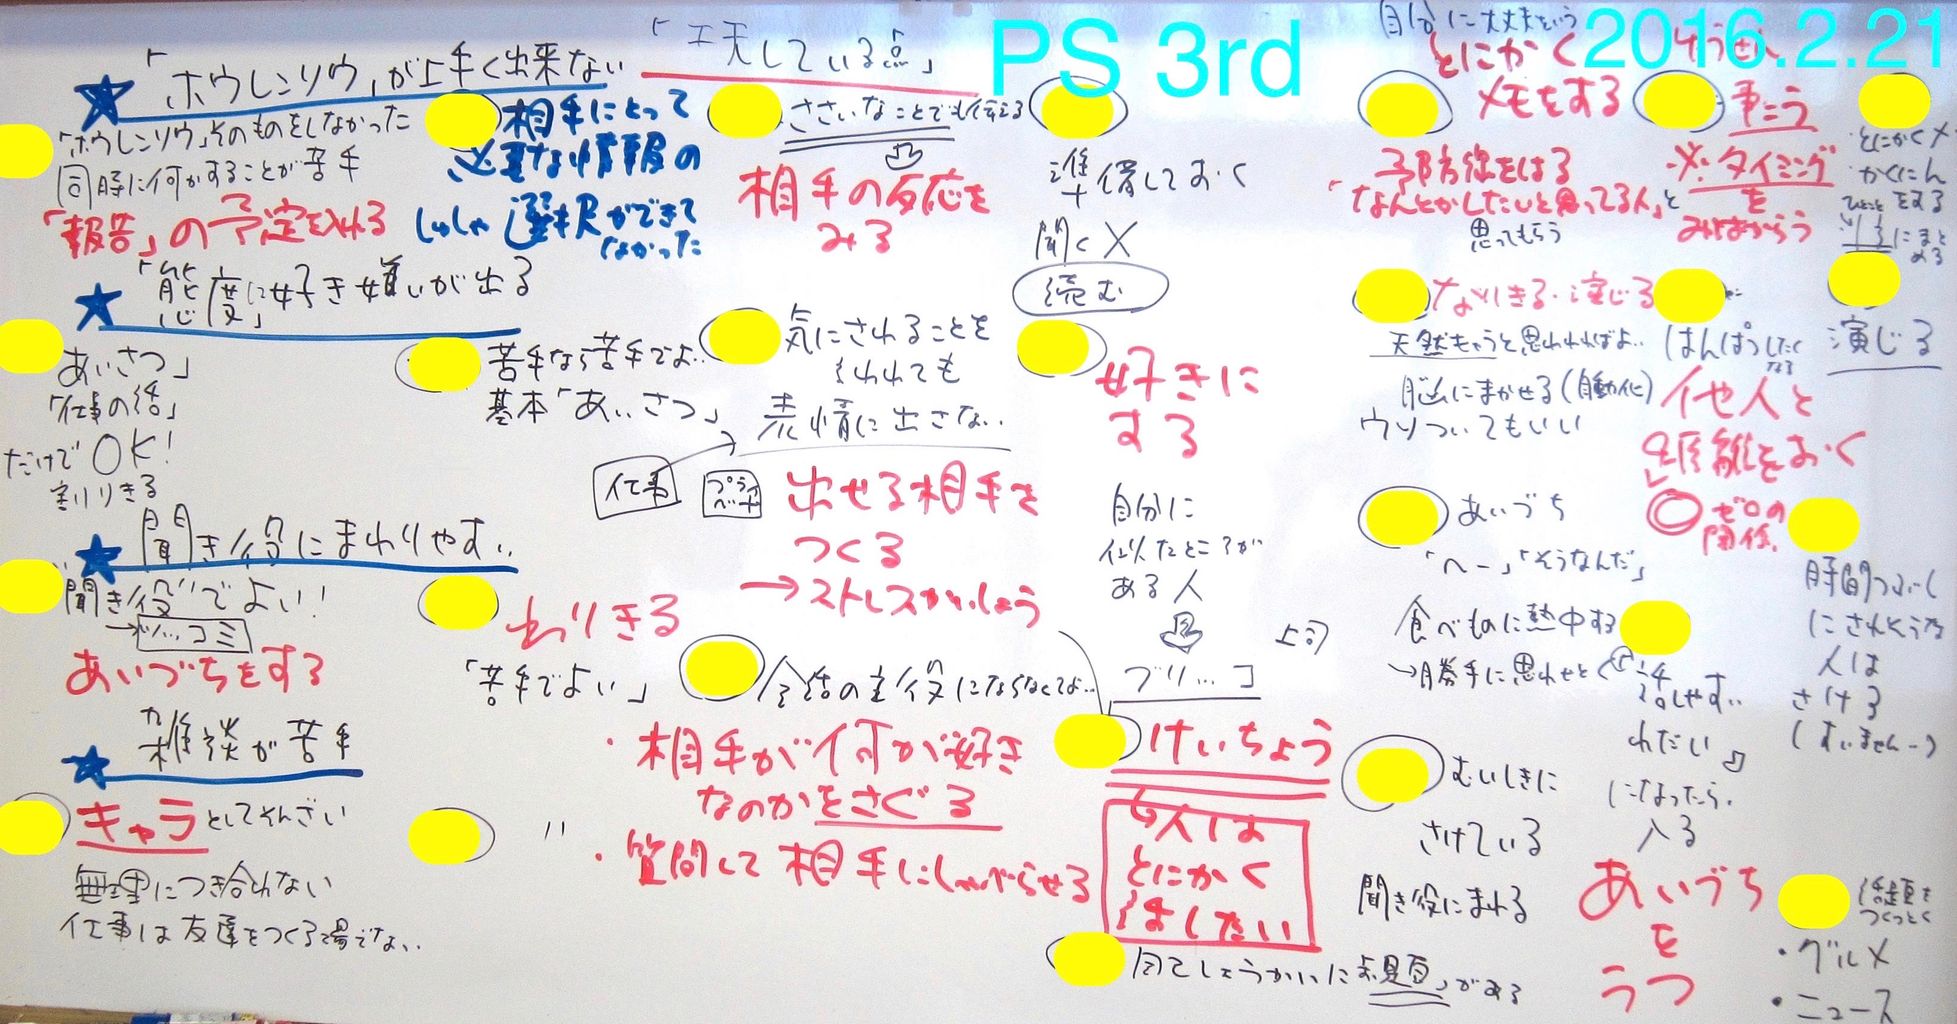 PS 3rd
2016.2.21
「工夫している点」
★「ホウレンソウ」が上手く出来ない
「ホウレンソウ」そのものをしなかった
同時に何かすることが苦手
「報告」の予定を入れる
相手にとって
必要な情報の
選択ができて
なかった
ささいなことでも伝える
相手の反応を
みる
準備しておく
聞く✕
読む
自分に大丈夫という
とにかく
メモをする
予防線をはる
「なんとかしたいと思ってる人」と
思ってもらう
※タイミング
を
みはからう
・とにかくメモ
・かくにん
をする
★「態度に好き嫌いが出る」
「あいさつ」
「仕事の話」
だけでOK!
割りきる
苦手なら苦手でよい
基本「あいさつ」
気にされることを
いわれても
表情に出さない
仕事
プライベート
出せる相手を
つくる
→ストレスかいしょう
好きに
する
自分に
似たところが
ある人
なりきる・演じる
天然キャラと思われればよい
脳にまかせる(自動化)
ウソついてもいい
他人と
距離をおく
ゼロの
関係
演じる
★聞き役にまわりやすい
"聞き役"でよい!
→ツッコミ
あいづちをする
わりきる
「苦手でよい」
会話の主役にならなくてよい
・相手が何が好き
なのかをさぐる
・質問して相手にしゃべらせる
上司
けいちょう
人は
とにかく
話したい
あいづち
「へー」「そうなんだ」
食べものに熱中する
→勝手に思わせとく
話しやすい
わだい
になったら
入る
時間つぶし
にされそうな
人は
さける
(すいませんー)
★雑談が苦手
キャラとしてそんざい
無理につき合わない
仕事は友達をつくる場でない
〃
自己しょうかいに
むいしきに
さけている
聞き役にまわる
あいづち
を
うつ
話題を
つくっとく
・グルメ
・ニュース